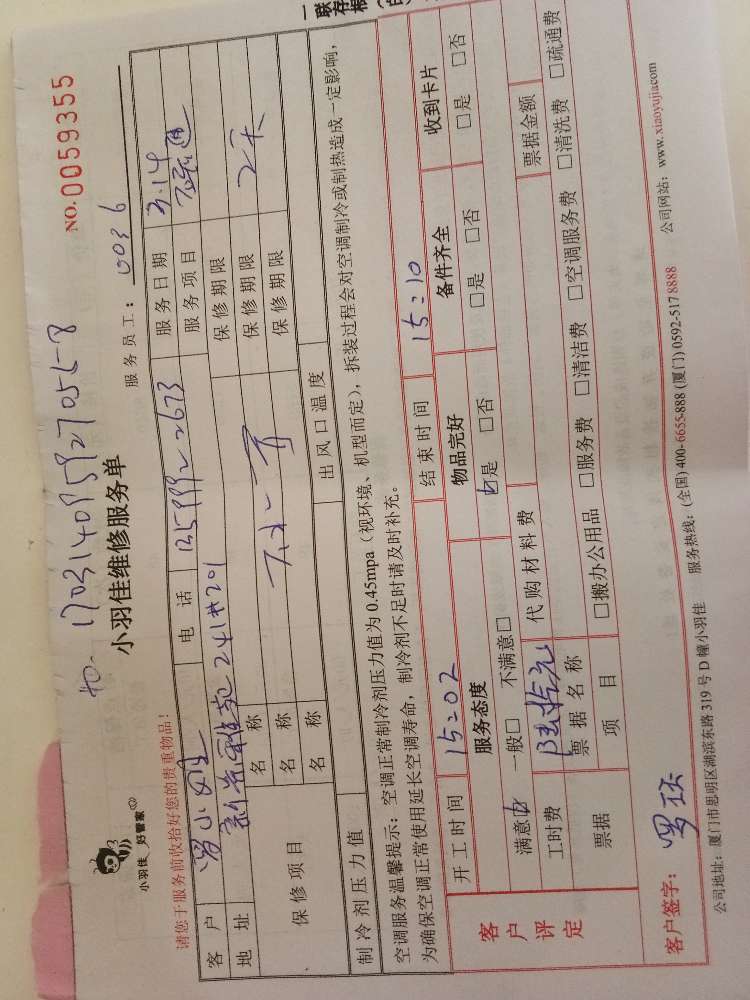 一联存根
NO.0059355
170314095927055-8
小羽佳 好管家
小羽佳维修服务单
服务员工： 0036
请您于服务前收拾好您的贵重物品！
客户 电话 服务日期 3.14
地址 241#201 服务项目
保修项目 名称 保修期限
名称 保修期限 2天
名称 保修期限
制冷剂压力值 出风口温度
空调服务温馨提示：空调正常制冷剂压力值为 0.45mpa（视环境、机型而定），拆装过程会对空调制冷或制热造成一定影响，
为确保空调正常使用延长空调寿命，制冷剂不足时请及时补充。
开工时间 15:02 结束时间 15:10
客户评定 服务态度 物品完好 备件齐全 收到卡片
满意☑ 一般□ 不满意□ ☑是 □否 □是 □否 □是 □否
工时费 代购材料费 票据金额
票据 票据名称
项目 □搬办公用品 □服务费 □清洁费 □空调服务费 □清洗费 □疏通费
客户签字：
公司地址：厦门市思明区湖滨东路 319 号 D 幢小羽佳 服务热线：(全国) 400-6655-888 (厦门) 0592-517 8888 公司网站：www.xiaoyujia.com